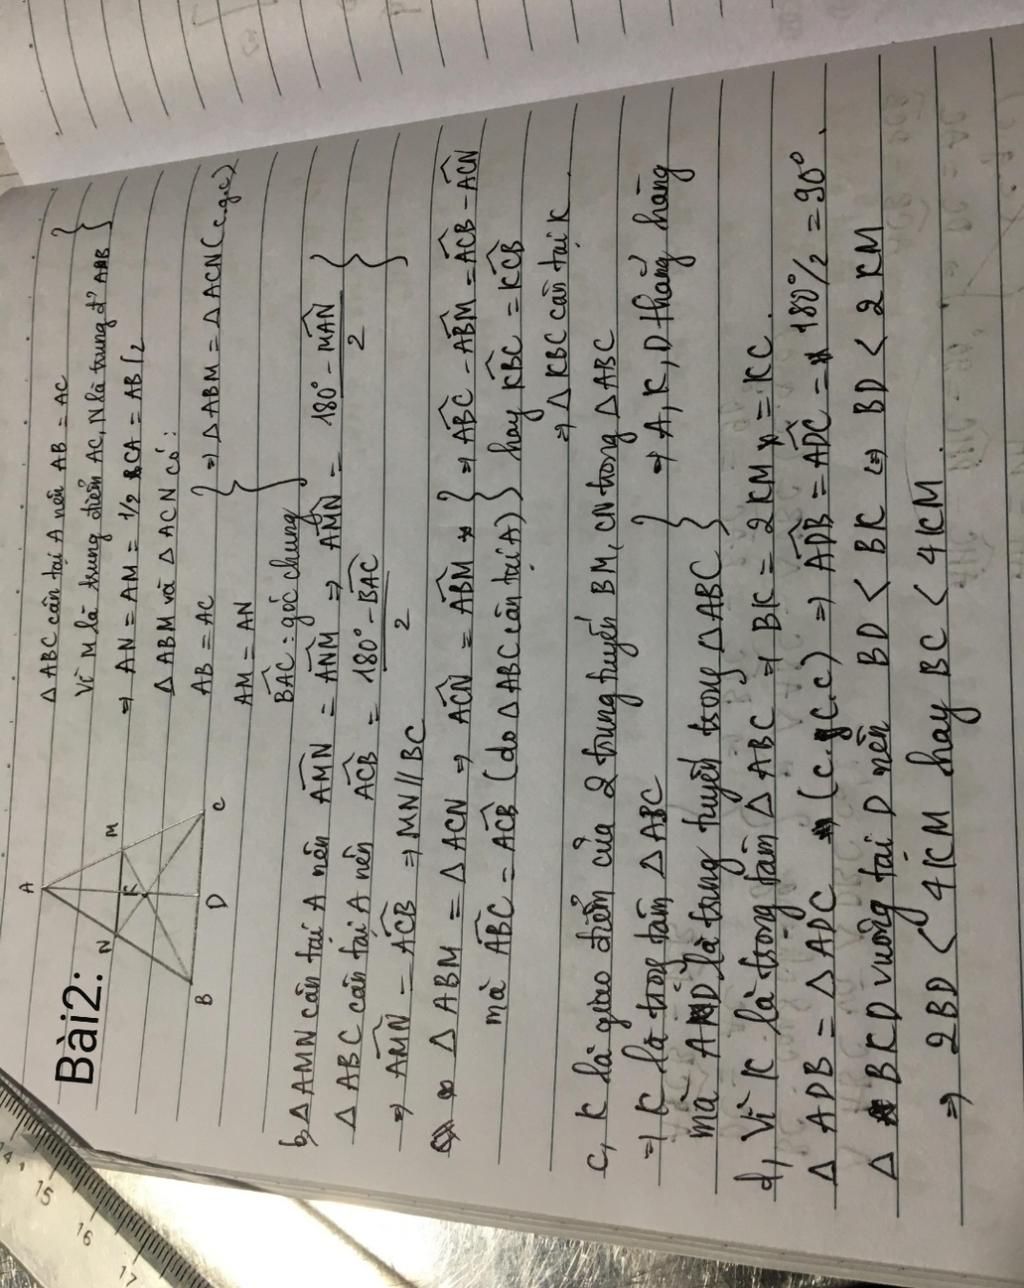 Bài2:
A
N
M
K
B
D
C
Δ ABC cân tại A nên AB = AC
Vì M là trung điểm AC, N là trung đ' AB
⇒ AN = AM = 1/2 CA = AB/2
Δ ABM và Δ ACN có:
AB = AC
AM = AN
⇒ Δ ABM = Δ ACN (c.g.c)
BAC : góc chung
b, Δ AMN cân tại A nên AMN = ANM ⇒ AMN = 180° - MAN / 2
Δ ABC cân tại A nên ACB = 180° - BAC / 2
⇒ AMN = ACB ⇒ MN // BC
Δ ABM = Δ ACN ⇒ ACN = ABM
mà ABC = ACB (do Δ ABC cân tại A)
⇒ ABC - ABM = ACB - ACN
hay KBC = KCB
⇒ Δ KBC cân tại K
c, K là giao điểm của 2 trung tuyến BM, CN trong Δ ABC
⇒ K là trọng tâm Δ ABC
mà AD là trung tuyến trong Δ ABC
⇒ A, K, D thẳng hàng
d, Vì K là trọng tâm Δ ABC ⇒ BK = 2 KM = KC.
Δ ADB = Δ ADC (c.c.c) ⇒ ADB = ADC = 180°/2 = 90°.
Δ BKD vuông tại D nên BD < BK ⇔ BD < 2 KM
⇒ 2BD < 4KM hay BC < 4KM.